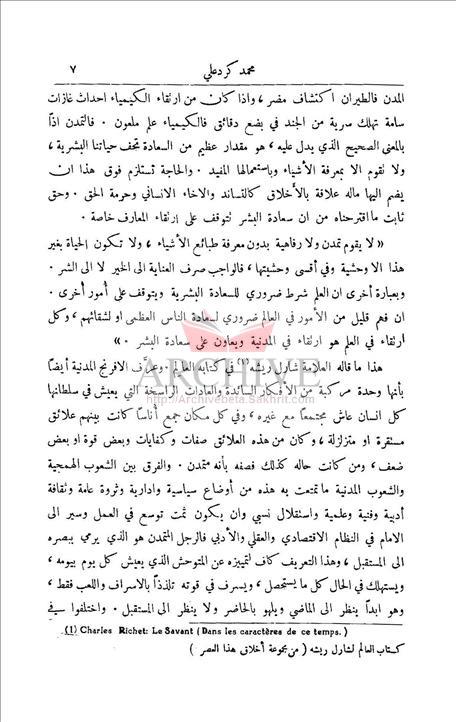 محمد كرد علي ٧
المدن فالطيران اكتشاف مضر ، واذا كان من ارتقاء الكيمياء احداث غازات
سامة تهلك سرية من الجند في بضع دقائق فالكيمياء علم ملعون . فالتمدن اذًا
بالمعنى الصحيح الذي يدل عليه ، هو مقدار عظيم من السعادة تحف حياتنا البشرية ،
ولا تقوم الا بمعرفة الأشياء وباستعمالها المفيد . والحاجة تستلزم فوق هذا ان
يضم اليها ماله علاقة بالأخلاق كالتساند والاخاء الانساني وحرمة الحق . وحق
ثابت ما اقترحناه من ان سعادة البشر تتوقف على إرتقاء المعارف خاصة .
« لا يقوم تمدن ولا رفاهية بدون معرفة طبائع الأشياء ، ولا تكون الحياة بغير
هذا الا وحشية وفي أقسى وحشيتها ، فالواجب صرف العناية الى الخير لا الى الشر .
وبعبارة أخرى ان العلم شرط ضروري للسعادة البشرية ويتوقف على أمور أخرى .
ان فهم قليل من الأمور في العالم ضروري لسعادة الناس العظمى او لشقائهم ، وكل
ارتقاء في العلم هو ارتقاء في المدنية ويعاون على سعادة البشر . »
هذا ما قاله العلامة شارل ريشه (1) في كتابه العالم . وعارف الافرنج المدنية أيضاً
بأنها وحدة مركبة من الأفكار السائدة والعادات الراسخة التي يعيش في سلطانها
كل انسان عاش مجتمعاً مع غيره ، وفي كل مكان جمع أناساً كانت بينهم علائق
مستقرة او متزلزلة ، وكان من هذه العلائق صفات وكفايات وبعض قوة او بعض
ضعف ، ومن كانت حاله كذلك فصفه بأنه متمدن . والفرق بين الشعوب الهمجية
والشعوب المدنية ما تمتعت به هذه من أوضاع سياسية وادارية وثروة عامة وثقافة
أدبية وفنية وعلمية واستقلال نسبي وان يكون ثمت توسع في العمل وسير الى
الامام في النظام الاقتصادي والعقلي والأدبي فالرجل المتمدن هو الذي يرمي ببصره
الى المستقبل ، وهذا التعريف كاف لتمييزه عن المتوحش الذي يعيش كل يوم بيومه ،
ويستهلك في الحال كل ما يستحصل ، ويسرف في قوته تلذذاً بالاسراف واللعب فقط ،
وهو ابداً ينظر الى الماضي ويلهو بالحاضر ولا ينظر الى المستقبل . واختلفوا في
(1) Charles Richet: Le Savant (Dans les caractères de ce temps.)
كتاب العالم لشارل ريشه ( من مجموعة أخلاق هذا العصر )
ARCHIVE
http://Archivebeta.Sakhrit.com